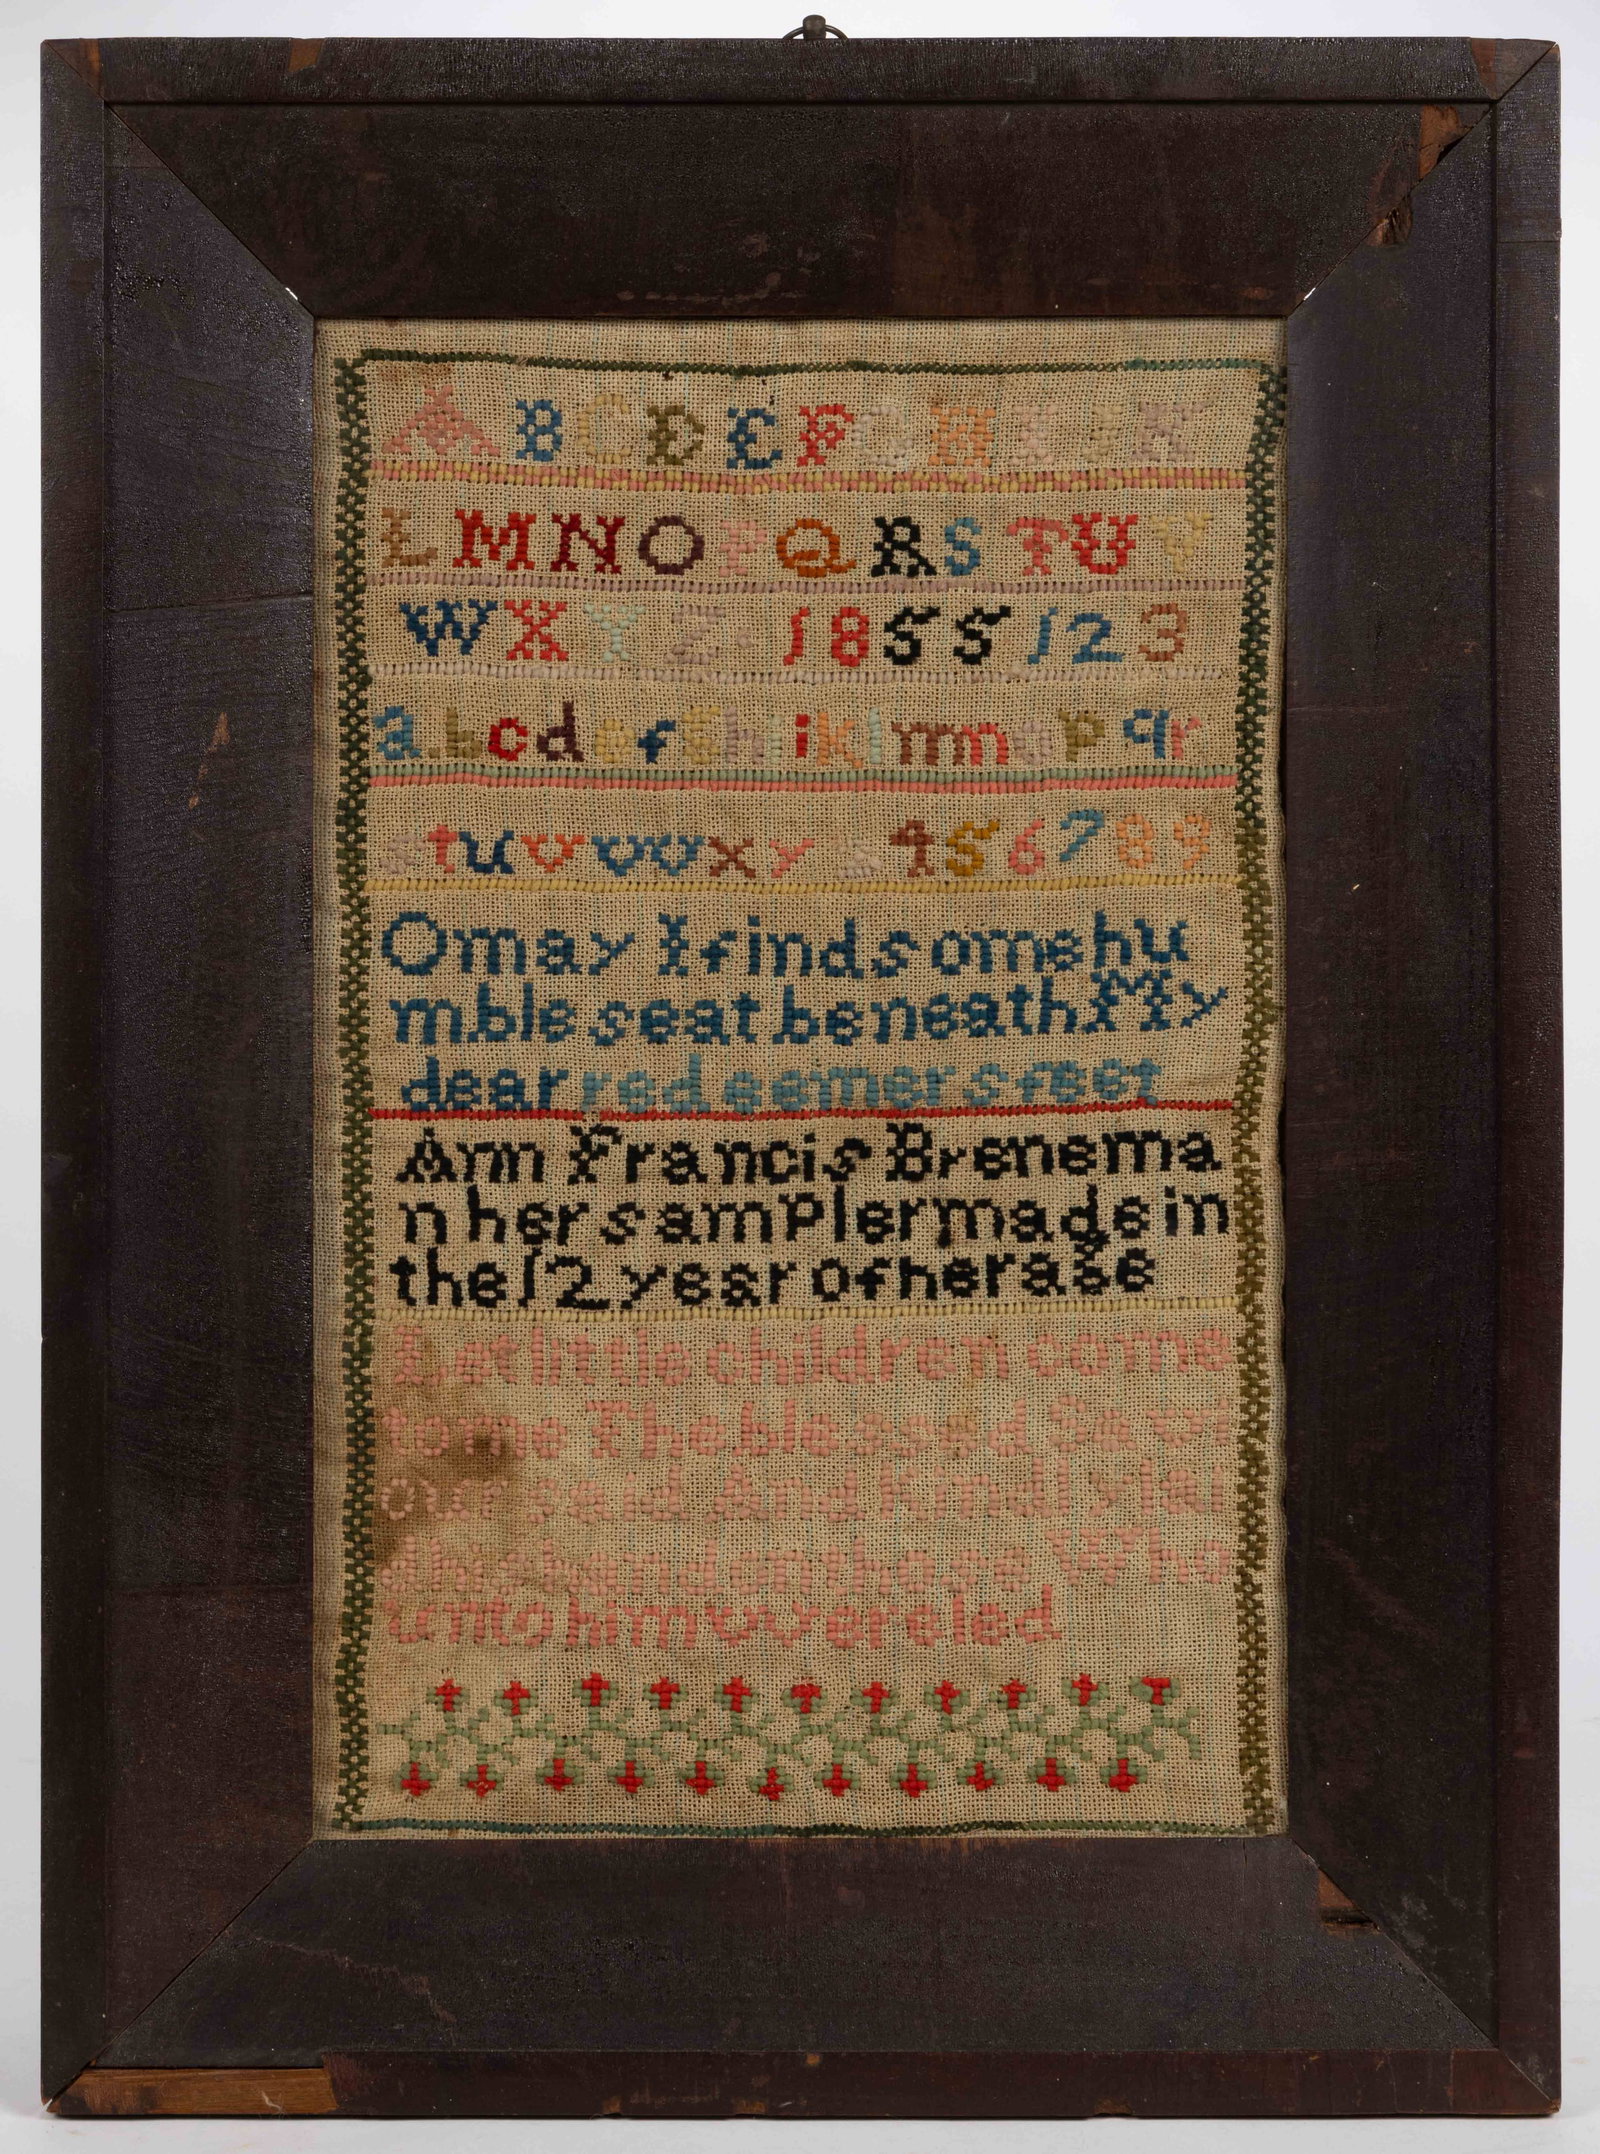 A B C D E F G H I J K
L M N O P Q R S T U V
W X Y Z. 1855 1 2 3
a.bcdefghiiklmnopqr
stuvwxyz 456789
O may I find some hu
mble seat beneath My
dear redeemers feet
Ann Francis Brenema
n her sampler made in
the 12 year of her age
Let little children come
to me The blessed Savi
our said And kindly lai
d his hand on those Who
unto him were led